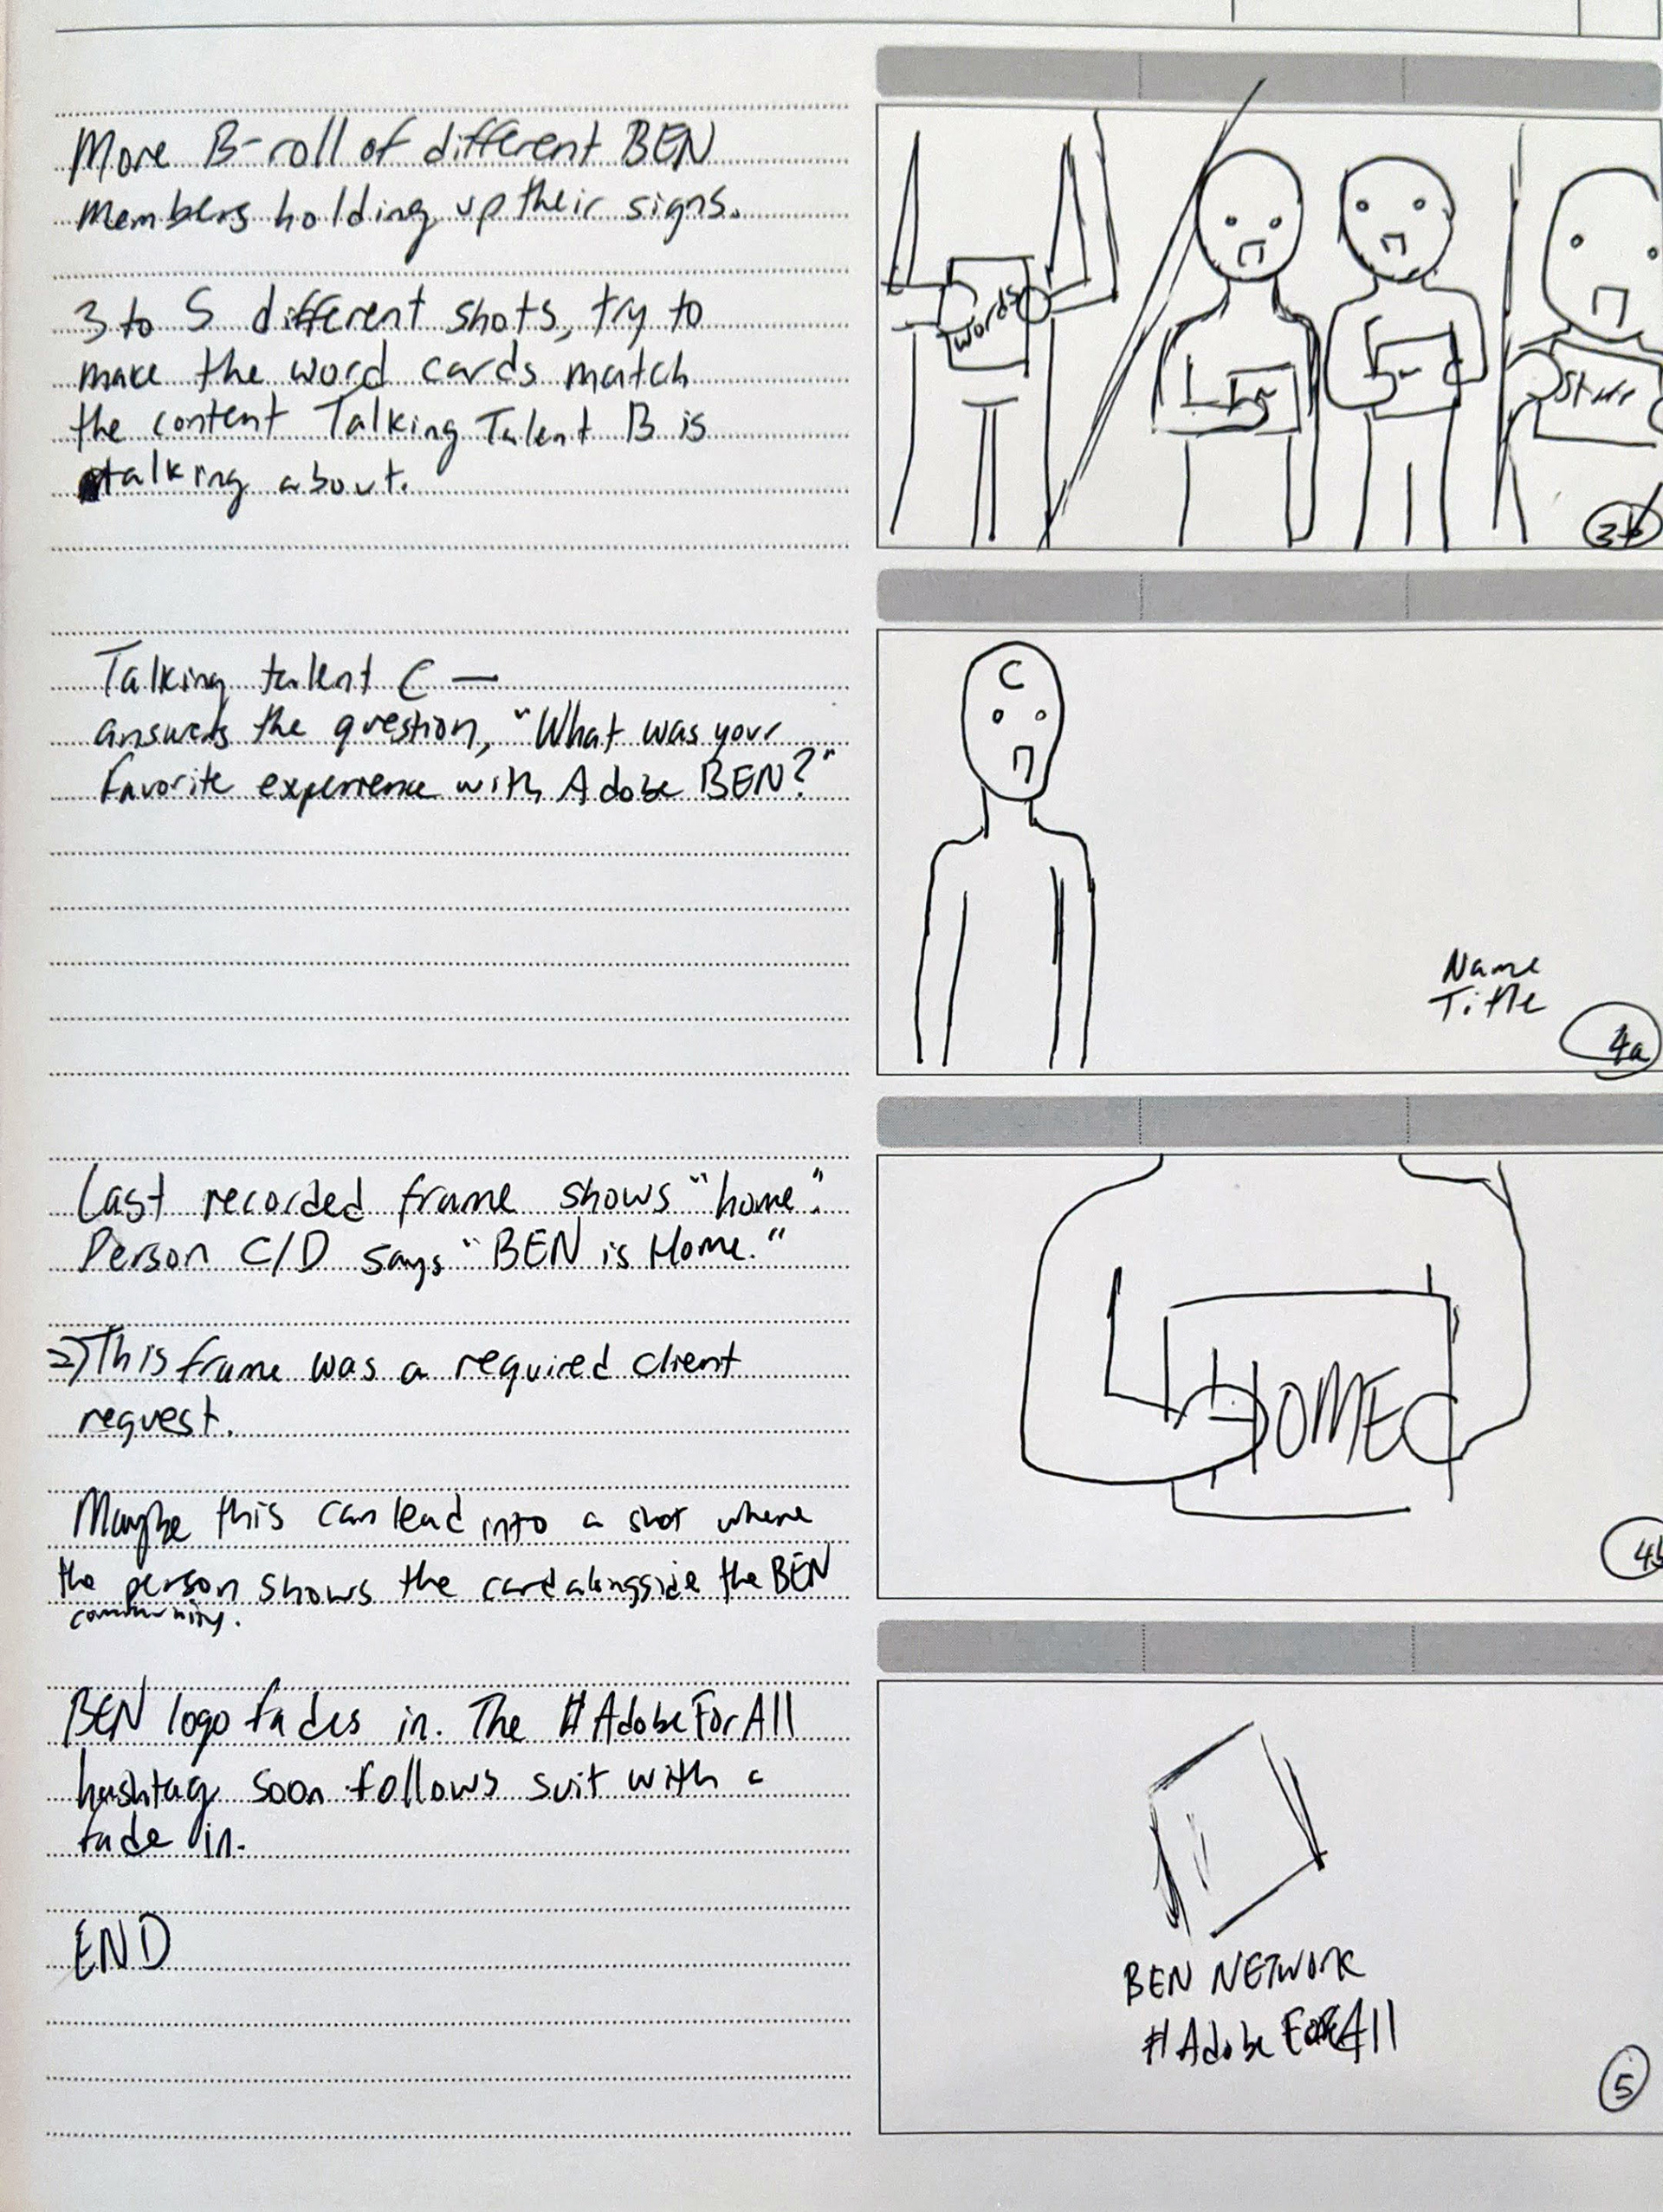 More B-roll of different BEN
members holding up their signs.
3 to 5 different shots, try to
make the word cards match
the content Talking Talent B is
talking about.
words
3b
Talking talent C —
answers the question, "What was your
favorite experience with Adobe BEN?"
C
Name
Title
4a
Last recorded frame shows "home".
Person C/D says "BEN is Home."
=> This frame was a required client
request.
Maybe this can lead into a shot where
the person shows the card alongside the BEN
community.
HOME
4b
BEN logo fades in. The #AdobeForAll
hashtag soon follows suit with a
fade in.
END
BEN NETWORK
#AdobeForAll
5